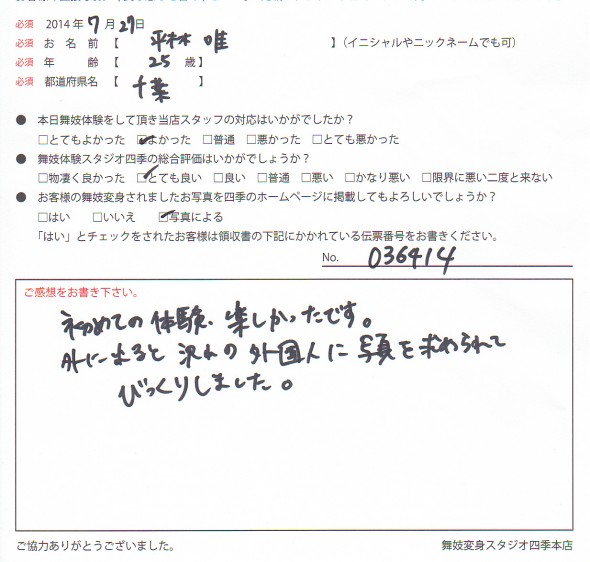 必須 2014年7月27日
必須 お名前【 平林 唯 】(イニシャルやニックネームでも可)
必須 年齢【 25 歳】
必須 都道府県名【 千葉 】
● 本日舞妓体験をして頂き当店スタッフの対応はいかがでしたか?
□とてもよかった ☑よかった □普通 □悪かった □とても悪かった
● 舞妓体験スタジオ四季の総合評価はいかがでしょうか?
□物凄く良かった ☑とても良い □良い □普通 □悪い □かなり悪い □限界に悪い二度と来ない
● お客様の舞妓変身されましたお写真を四季のホームページに掲載してもよろしいでしょうか?
□はい □いいえ ☑写真による
「はい」とチェックをされたお客様は領収書の下記にかかれている伝票番号をお書きください。
No. 036414
ご感想をお書き下さい。
初めての体験、楽しかったです。
外に出ると沢山の外国人に写真を求められて
びっくりしました。
ご協力ありがとうございました。
舞妓変身スタジオ四季本店